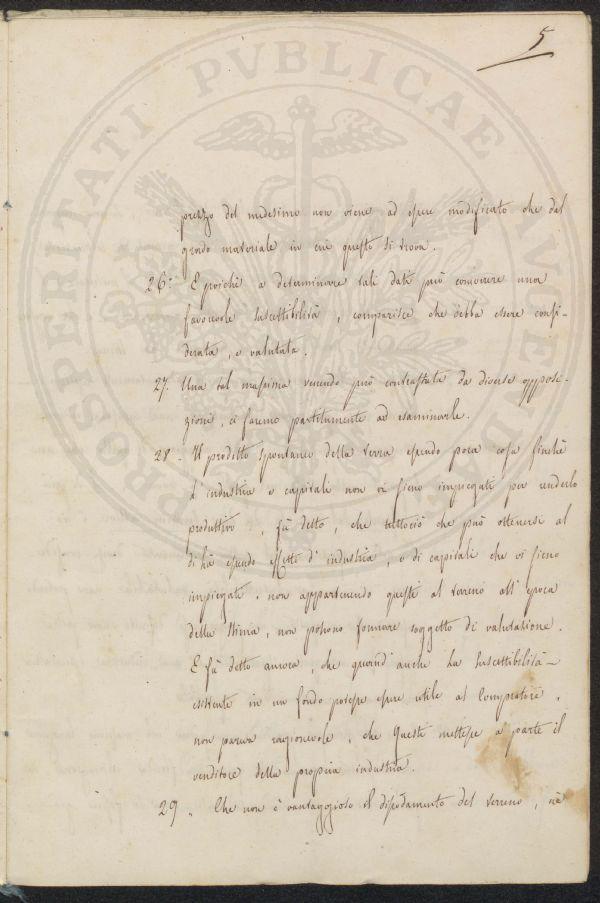 5
prezzo del medesimo non viene ad essere modificato che dal
grado materiale in cui questo si trova.
26.° E poichè a determinare tali dati può concorrere una
favorevole suscettibilità, comparisce che debba essere consi-
derata, e valutata.
27. Una tal massima venendo però contrastata da diverse opposi-
zioni, ci faremo partitamente ad esaminarle.
28. Il prodotto spontaneo della terra essendo poca cosa finchè
d'industria o capitali non vi sieno impiegati per renderlo
produttivo, fù detto, che tuttociò che può ottenersi al
di là essendo effetti d'industria, o di capitali che vi sieno
impiegati, non appartenendo questi al terreno all'epoca
della stima, non possono formare soggetto di valutazione.
E fù detto ancora, che quand'anche la suscettibilità
esistente in un fondo potesse essere utile al Compratore,
non pareva ragionevole, che questi mettesse a parte il
venditore della propria industria.
29. Che non è vantaggioso il dissodamento del terreno, nè
PROSPERITATI PVBLICAE AVGENDAE